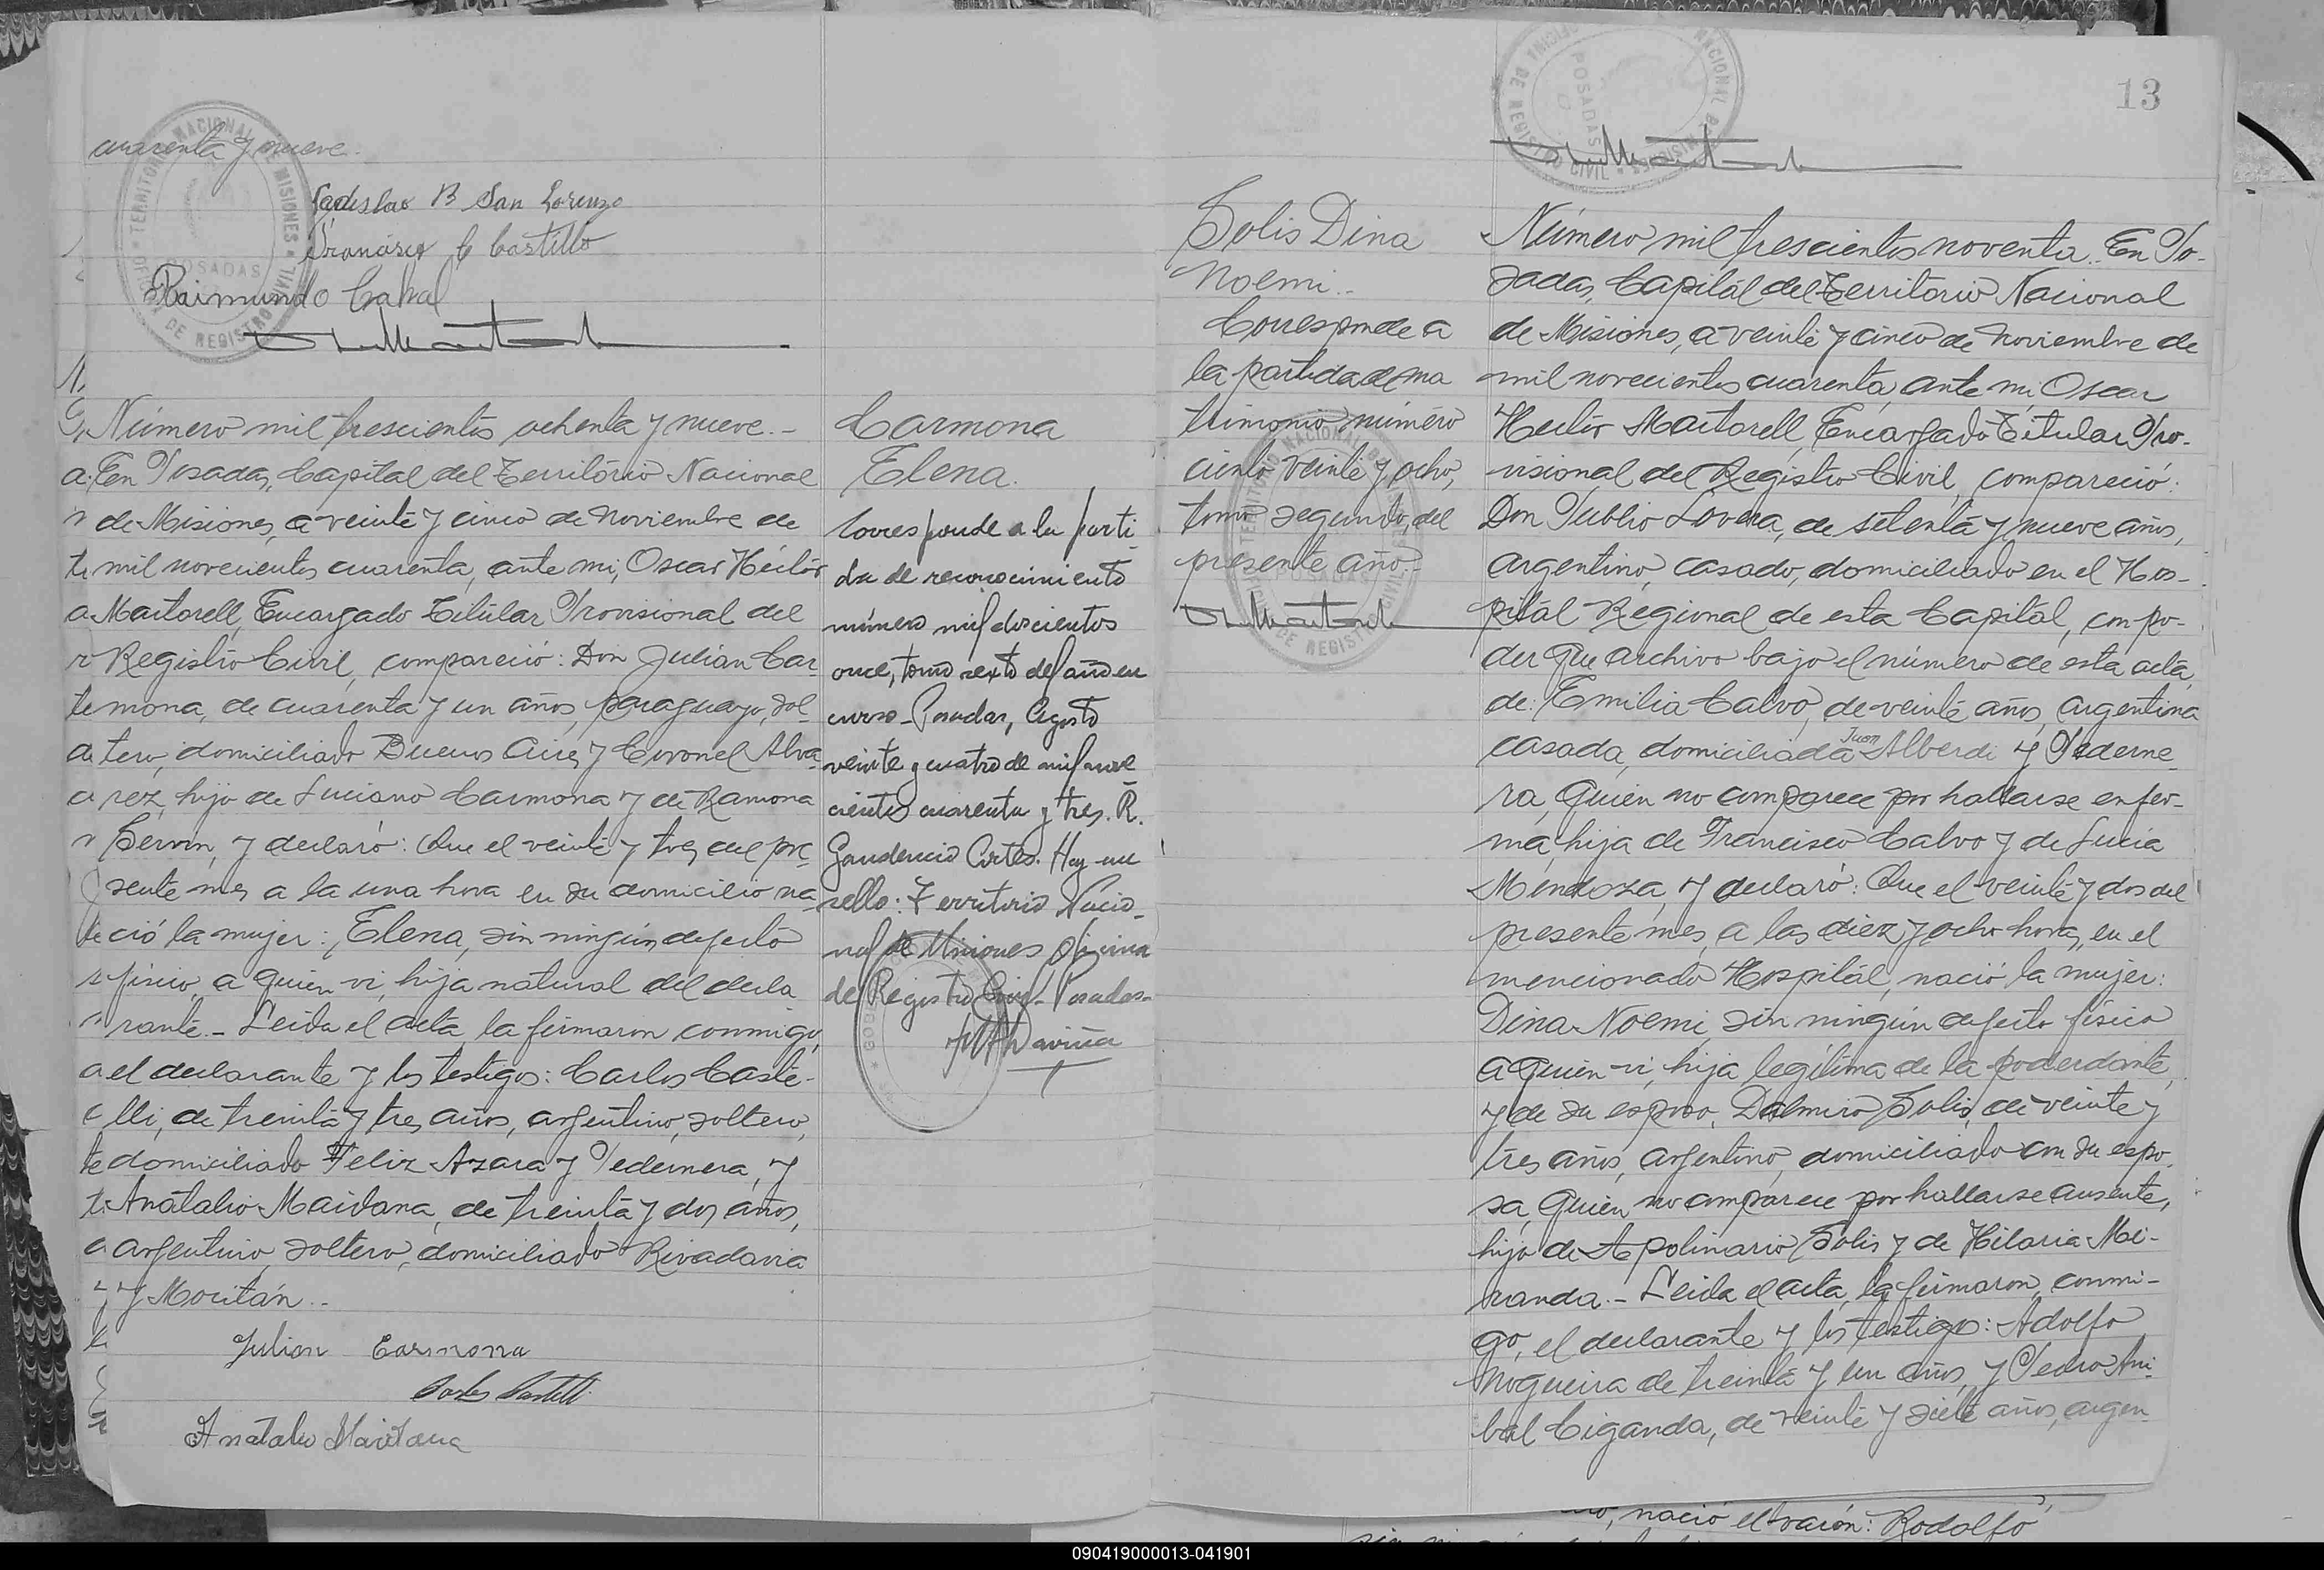 cuarenta y nueve.
Ladislao B San Lorenzo
Francisco C Castillo
Raimundo Cabral
Número mil trescientos ochenta y nueve.-
En Posadas, Capital del Territorio Nacional
de Misiones, a veinte y cinco de Noviembre de
mil novecientos cuarenta, ante mi, Oscar Héctor
Martorell, Encargado Titular Provisional del
Registro Civil, compareció: Don Julian Car
mona, de cuarenta y un años, paraguayo, sol-
tero, domiciliado Buenos Aires y Coronel Alva
rez, hijo de Luciano Carmona y de Ramona
Servin, y declaró: Que el veinte y tres del pre
sente mes a la una hora en su domicilio na
ció la mujer: Elena, sin ningún defecto
físico, a quien vi, hija natural del decla
rante.- Leida el acta, la firmaron conmigo,
el declarante y los testigos: Carlos Caste-
lli, de treinta y tres años, argentino, soltero,
domiciliado Feliz Azara y Pedernera, y
Anatalio Maidana, de treinta y dos años,
argentino, soltero, domiciliado Rivadavia
y Moritán.-
Julian Carmona
Carlos Castelli
Anatalio Maidana
Carmona
Elena.
Corresponde a la parti
da de reconocimiento
número mil doscientos
once, tomo sexto del año en
curso - Posadas, Agosto
veinte y cuatro de mil nove
cientos cuarenta y tres. R.
Gaudencio Cortes. Hay un
sello: Territorio Nacio-
nal de Misiones Oficina
del Registro Civil - Posadas-
13
Solis Dina
Noemi.-
Corresponde a
la partida de ma
trimonio número
ciento veinte y ocho,
tomo segundo, del
presente año.-
Número mil trescientos noventa. En Po-
sadas, Capital del Territorio Nacional
de Misiones, a veinte y cinco de Noviembre de
mil novecientos cuarenta, ante mi, Oscar
Hector Martorell, Encargado Titular Pro-
visional del Registro Civil, compareció:
Don Publio Lovera, de setenta y nueve años,
argentino, casado, domiciliado en el Hos-
pital Regional de esta Capital, con po-
der que archivo bajo el número de esta acta,
de: Emilia Calvo, de veinte años, argentina
casada, domiciliada Juan Alberdi y Pederne
ra, quien no comparece por hallarse enfer-
ma, hija de Francisco Calvo y de Lucia
Mendoza, y declaró: Que el veinte y dos del
presente mes, a las diez y ocho horas, en el
mencionado Hospital, nació la mujer:
Dina Noemi, sin ningún defecto físico
a quien vi, hija legítima de la poderdante,
y de su esposo, Dalmiro Solis, de veinte y
tres años, argentino, domiciliado con su espo
sa, quien no comparece por hallarse ausente,
hijo de Apolinario Solis y de Hilaria Mi-
randa.- Leida el acta, la firmaron, conmi-
go, el declarante y los testigos: Adolfo
Nogueira de treinta y un años, y Pedro Aní-
bal Ciganda, de veinte y siete años, argen-
nació el varón: Rodolfo
090419000013-041901